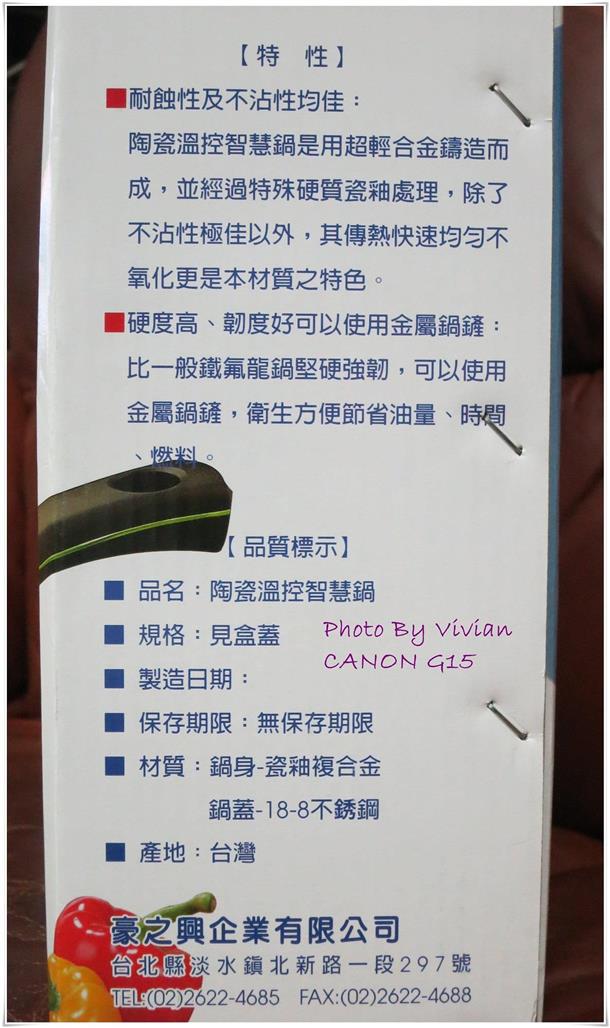 【特 性】
■耐蝕性及不沾性均佳：
陶瓷溫控智慧鍋是用超輕合金鑄造而
成，並經過特殊硬質瓷釉處理，除了
不沾性極佳以外，其傳熱快速均勻不
氧化更是本材質之特色。
■硬度高、韌度好可以使用金屬鍋鏟：
比一般鐵氟龍鍋堅硬強韌，可以使用
金屬鍋鏟，衛生方便節省油量、時間
、燃料。
【品質標示】
■ 品名：陶瓷溫控智慧鍋
■ 規格：見盒蓋
Photo By Vivian
CANON G15
■ 製造日期：
■ 保存期限：無保存期限
■ 材質：鍋身-瓷釉複合金
鍋蓋-18-8不銹鋼
■ 產地：台灣
豪之興企業有限公司
台北縣淡水鎮北新路一段297號
TEL:(02)2622-4685 FAX:(02)2622-4688